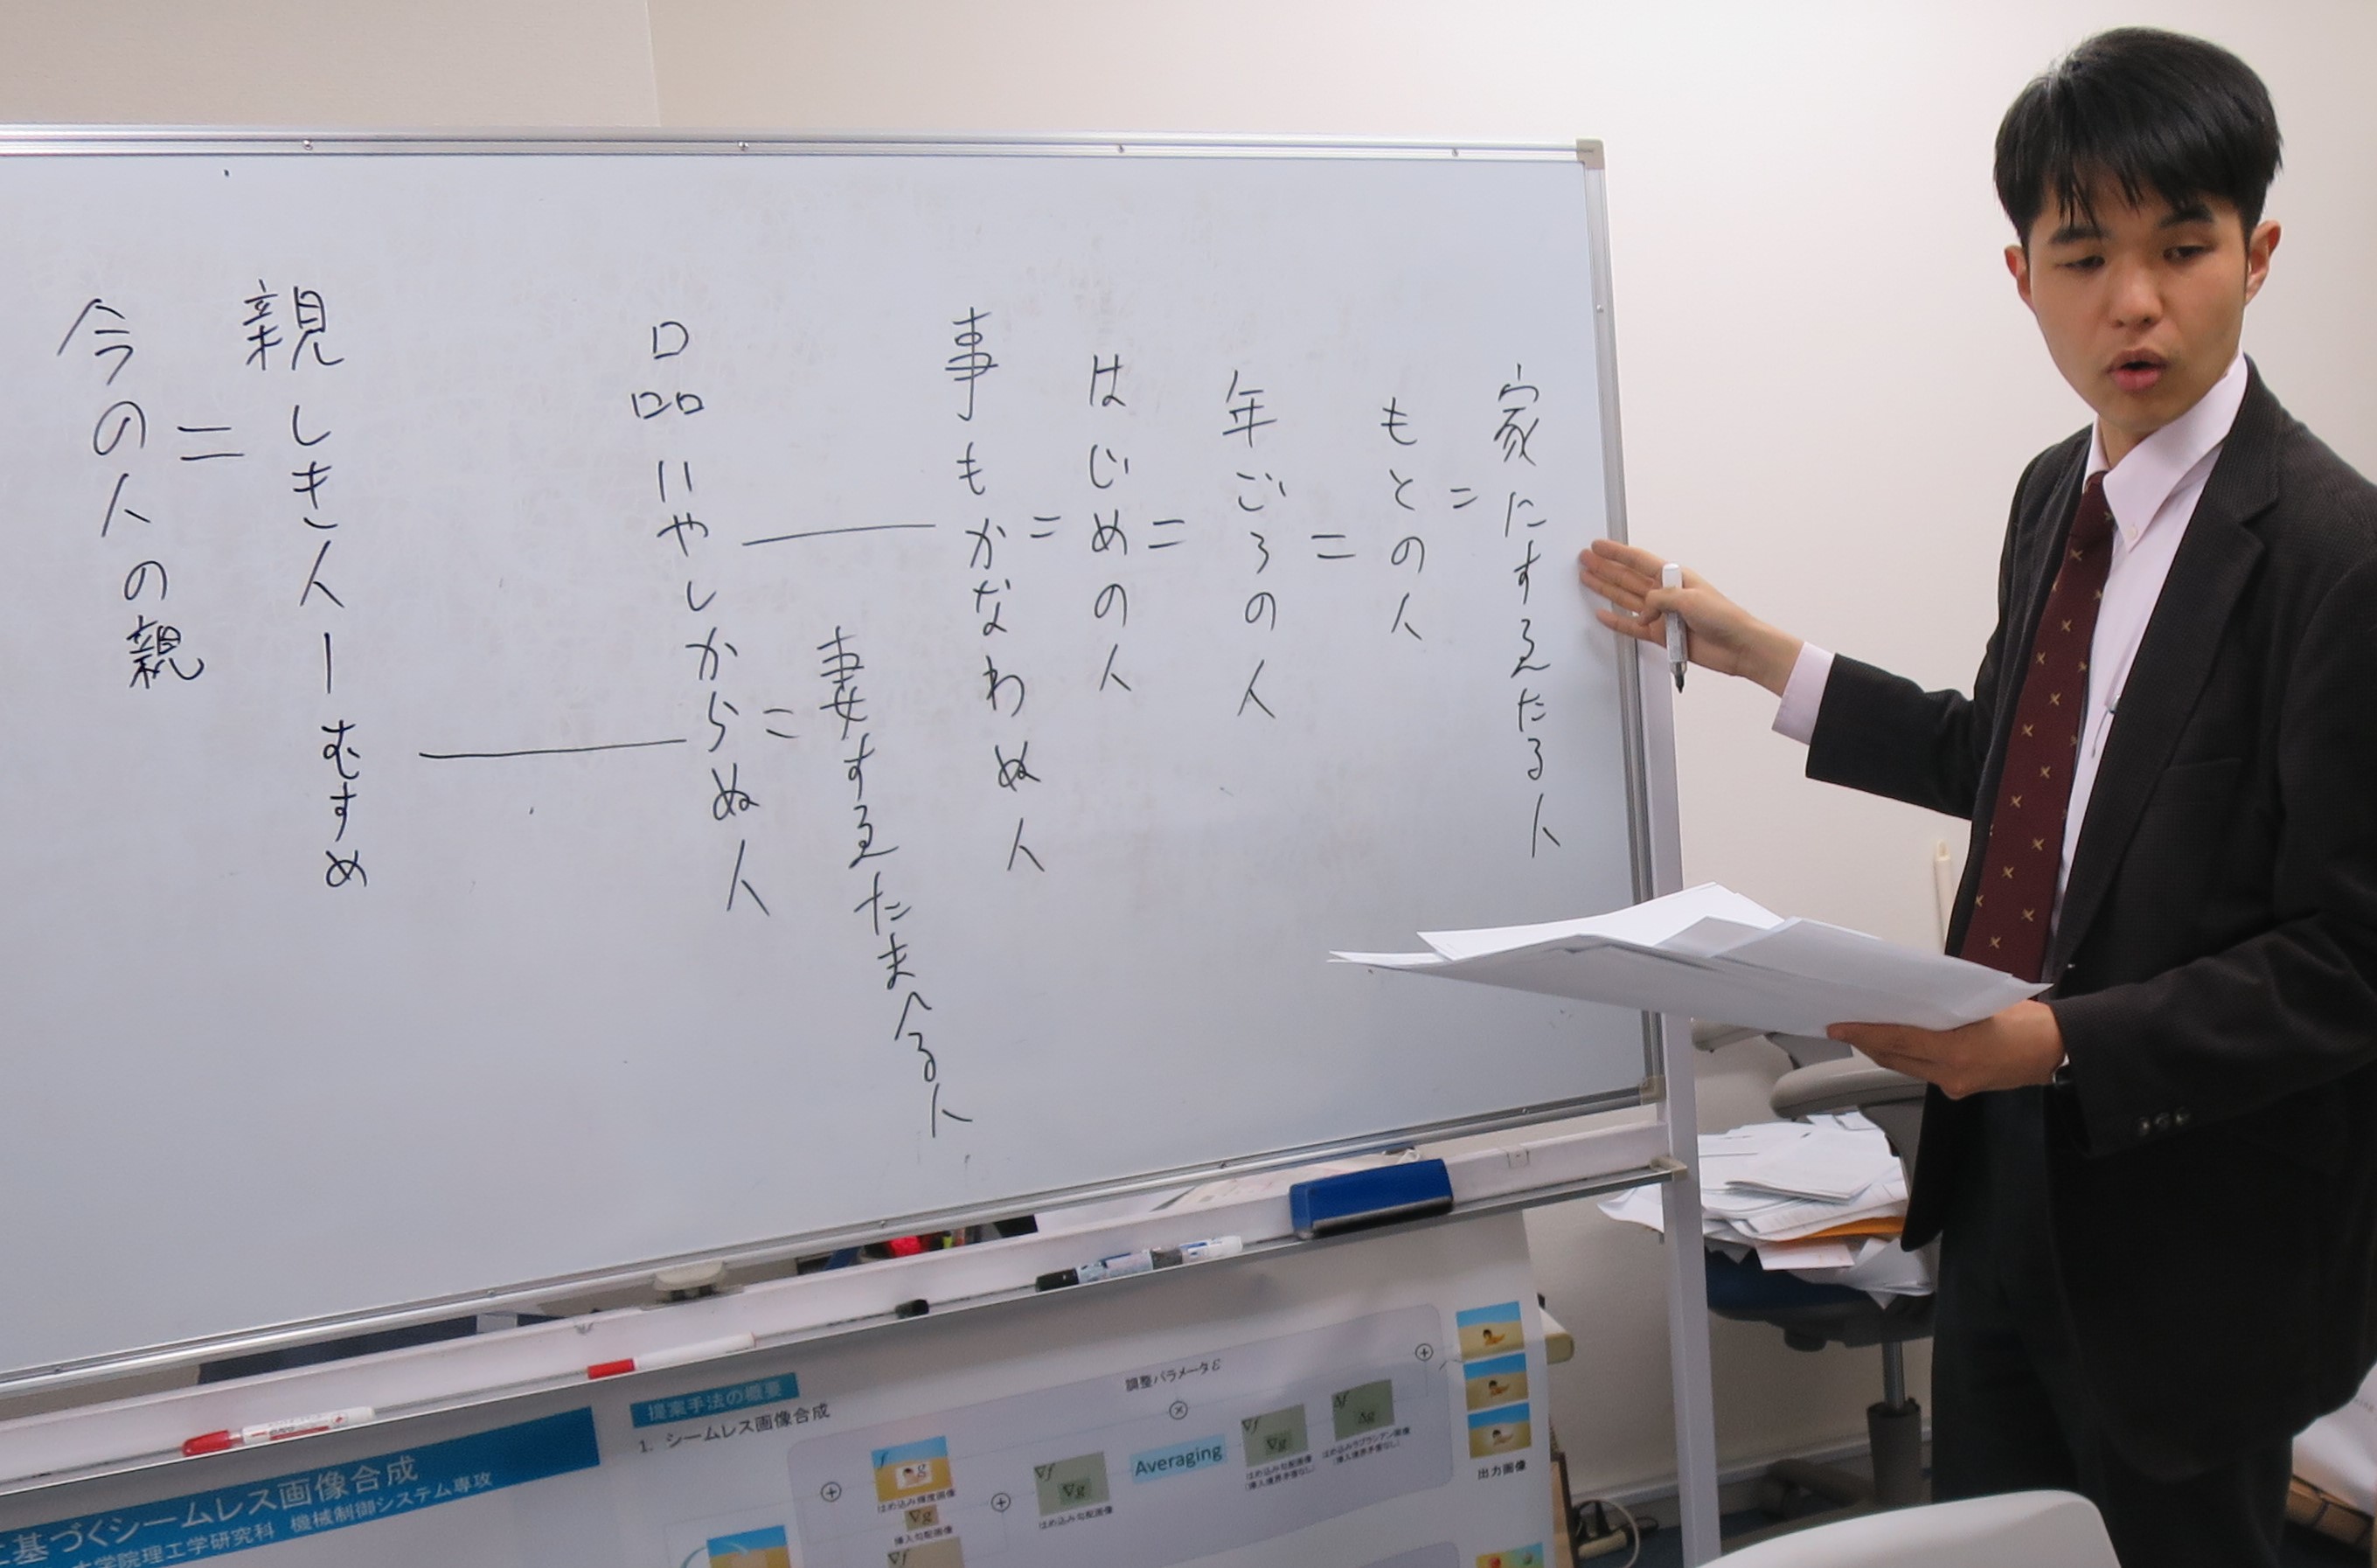 家にすゑたる人
=
もとの人
=
年ごろの人
=
はじめの人
=
事もかなわぬ人
妻すゑたまへる人
=
品いやしからぬ人
親しき人ーむすめ
=
今の人の親
基づくシームレス画像合成
大学院理工学研究科 機械制御システム専攻
提案手法の概要
1. シームレス画像合成
調整パラメータε
f
g
はめ込み輝度画像
∇g
挿入勾配画像
∇f
∇f
∇g
はめ込み勾配画像
Averaging
∇f
∇g
はめ込み勾配画像
Δf
Δg
出力画像